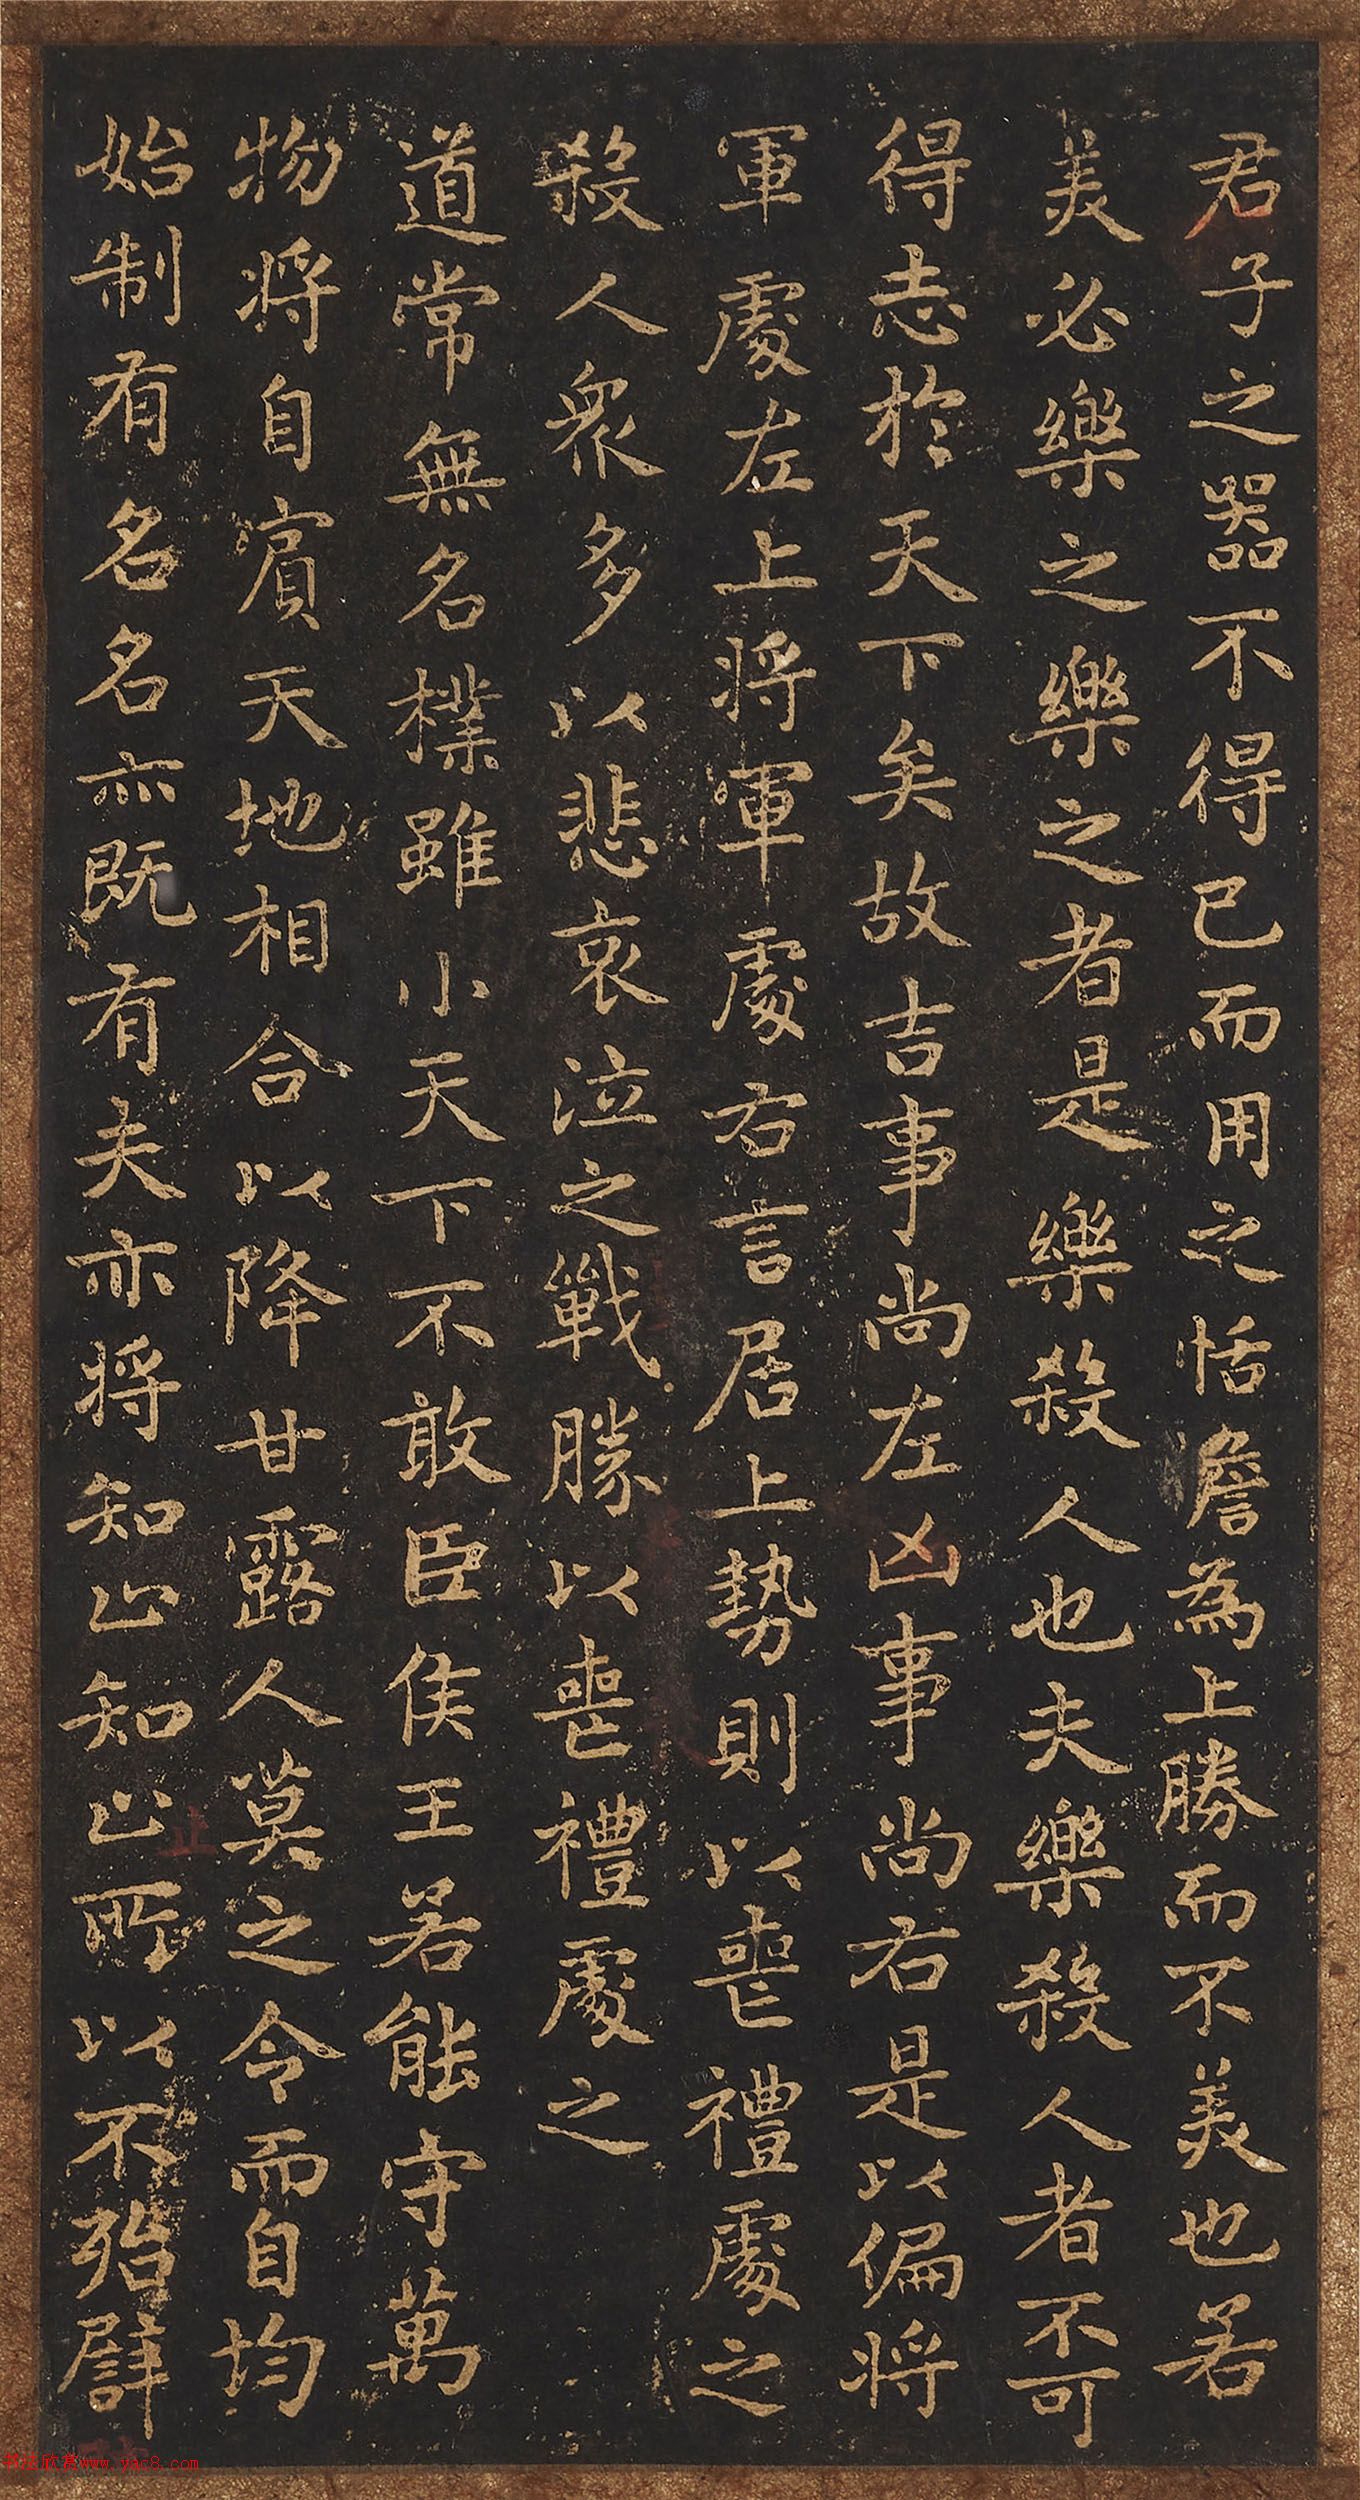 君子之器不得已而用之恬憺為上勝而不美也若
美必樂之樂之者是樂殺人也夫樂殺人者不可
得志於天下矣故吉事尚左凶事尚右是以偏將
軍處左上將軍處右言居上勢則以喪禮處之
殺人衆多以悲哀泣之戰勝以喪禮處之
道常無名樸雖小天下不敢臣侯王若能守萬
物將自賓天地相合以降甘露人莫之令而自均
始制有名名亦既有夫亦將知止知止所以不殆譬
止
书法欣赏www.yac8.com